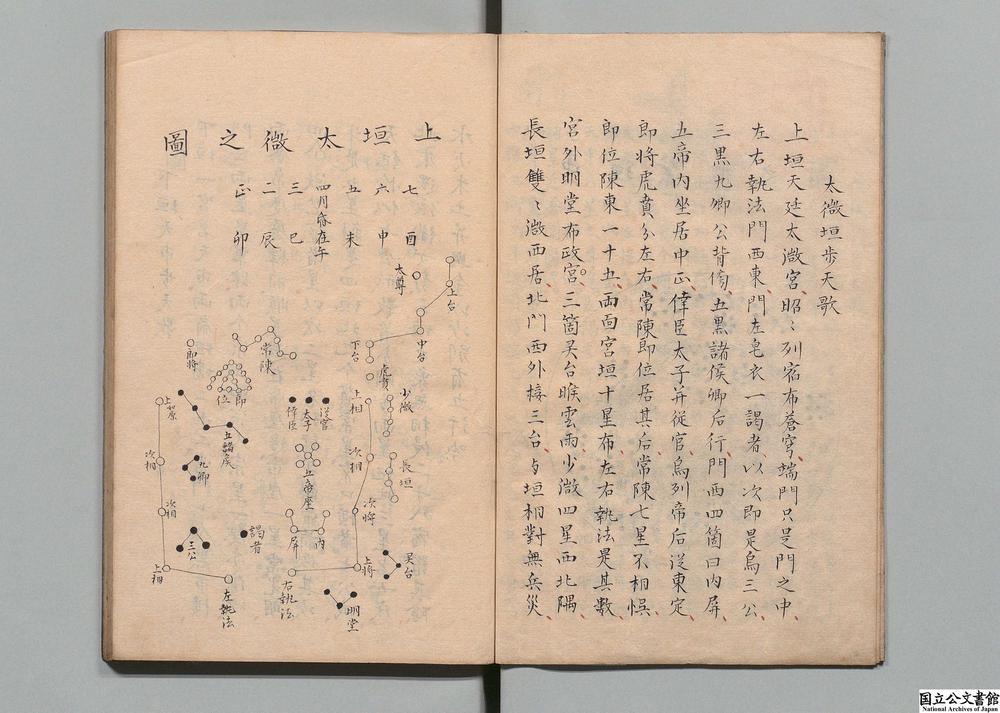 太微垣歩天歌
上垣天廷太微宮昭〻列宿布蒼穹端門只是門之中
左右執法門西東門左皂衣一謁者以次即是烏三公
三黒九卿公背傍五黒諸侯卿后行門西四箇曰内屏
五帝内坐居中正倖臣太子并從官烏列帝后從東定
郎將虎賁分左右常陳郎位居其后常陳七星不相悞
郎位陳東一十五両面宮垣十星布左右執法是其數
宮外明堂布政宮三箇灵台睺雲雨少微四星西北隅
長垣雙〻微西居北門西外接三台与垣相對無兵災
上垣太微之圖
七 酉
六 申
五 未
四月昏在午
三 巳
二 辰
正 卯
太尊
上台
中台
下台
虎賁
少微
長垣
灵台
上相
次相
次將
上將
右執法
明堂
從官
太子
倖臣
五帝座
内
屏
常陳
郎
位
郎將
五諸侯
九卿
三公
謁者
次相
次相
上相
左執法
国立公文書館
National Archives of Japan